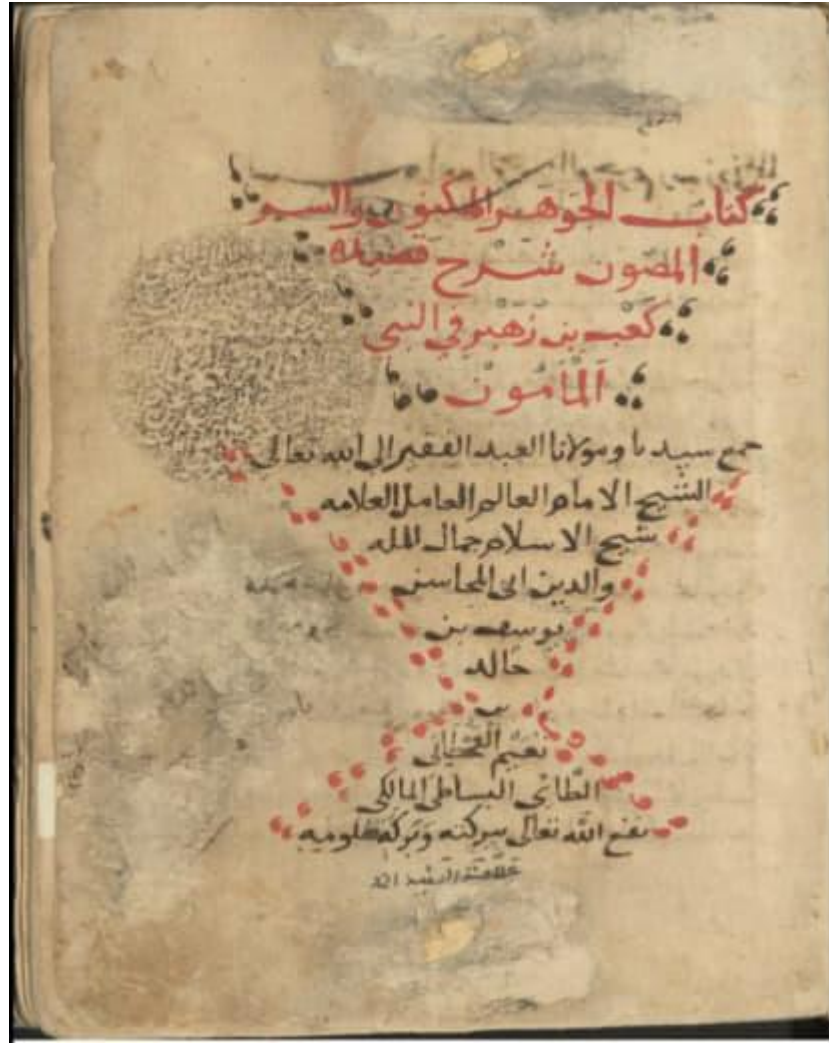 كتاب الجوهر المكنون والسر
المصون شرح قصيدة
كعب بن زهير في النبي
المأمون
جمع سيدنا ومولانا العبد الفقير الى الله تعالى
الشيخ الامام العالم العامل العلامه
شيخ الاسلام جمال المله
والدين ابى المحاسن
يوسف بن
خالد
بن
نعيم
الطائى البساطى المالكى
نفع الله تعالى ببركته وبركة